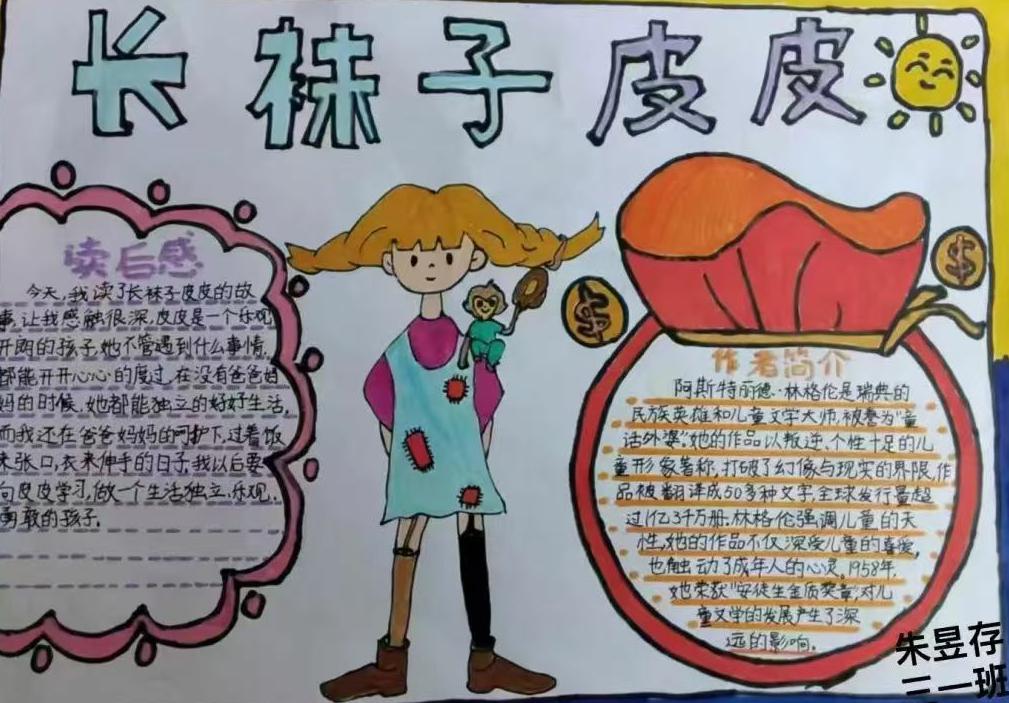 长袜子皮皮
读后感
今天,我读了长袜子皮皮的故
事,让我感触很深,皮皮是一个乐观
开朗的孩子,她不管遇到什么事情,
都能开开心心的度过,在没有爸爸妈
妈的时候,她都能独立的好好生活,
而我还在爸爸妈妈的呵护下,过着饭
来张口,衣来伸手的日子,我以后要
向皮皮学习,做一个生活独立,乐观,
勇敢的孩子.
$
$
作者简介
阿斯特丽德·林格伦是瑞典的
民族英雄和儿童文学大师,被誉为“童
话外婆”,她的作品以叛逆、个性十足的儿
童形象著称,打破了幻像与现实的界限,作
品被翻译成50多种文字,全球发行量超
过1亿3千万册.林格伦强调儿童的天
性,她的作品不仅深受儿童的喜爱,
也触动了成年人的心灵。1958年,
她荣获“安徒生金质奖章”,对儿
童文学的发展产生了深
远的影响。
朱昱存
二一班